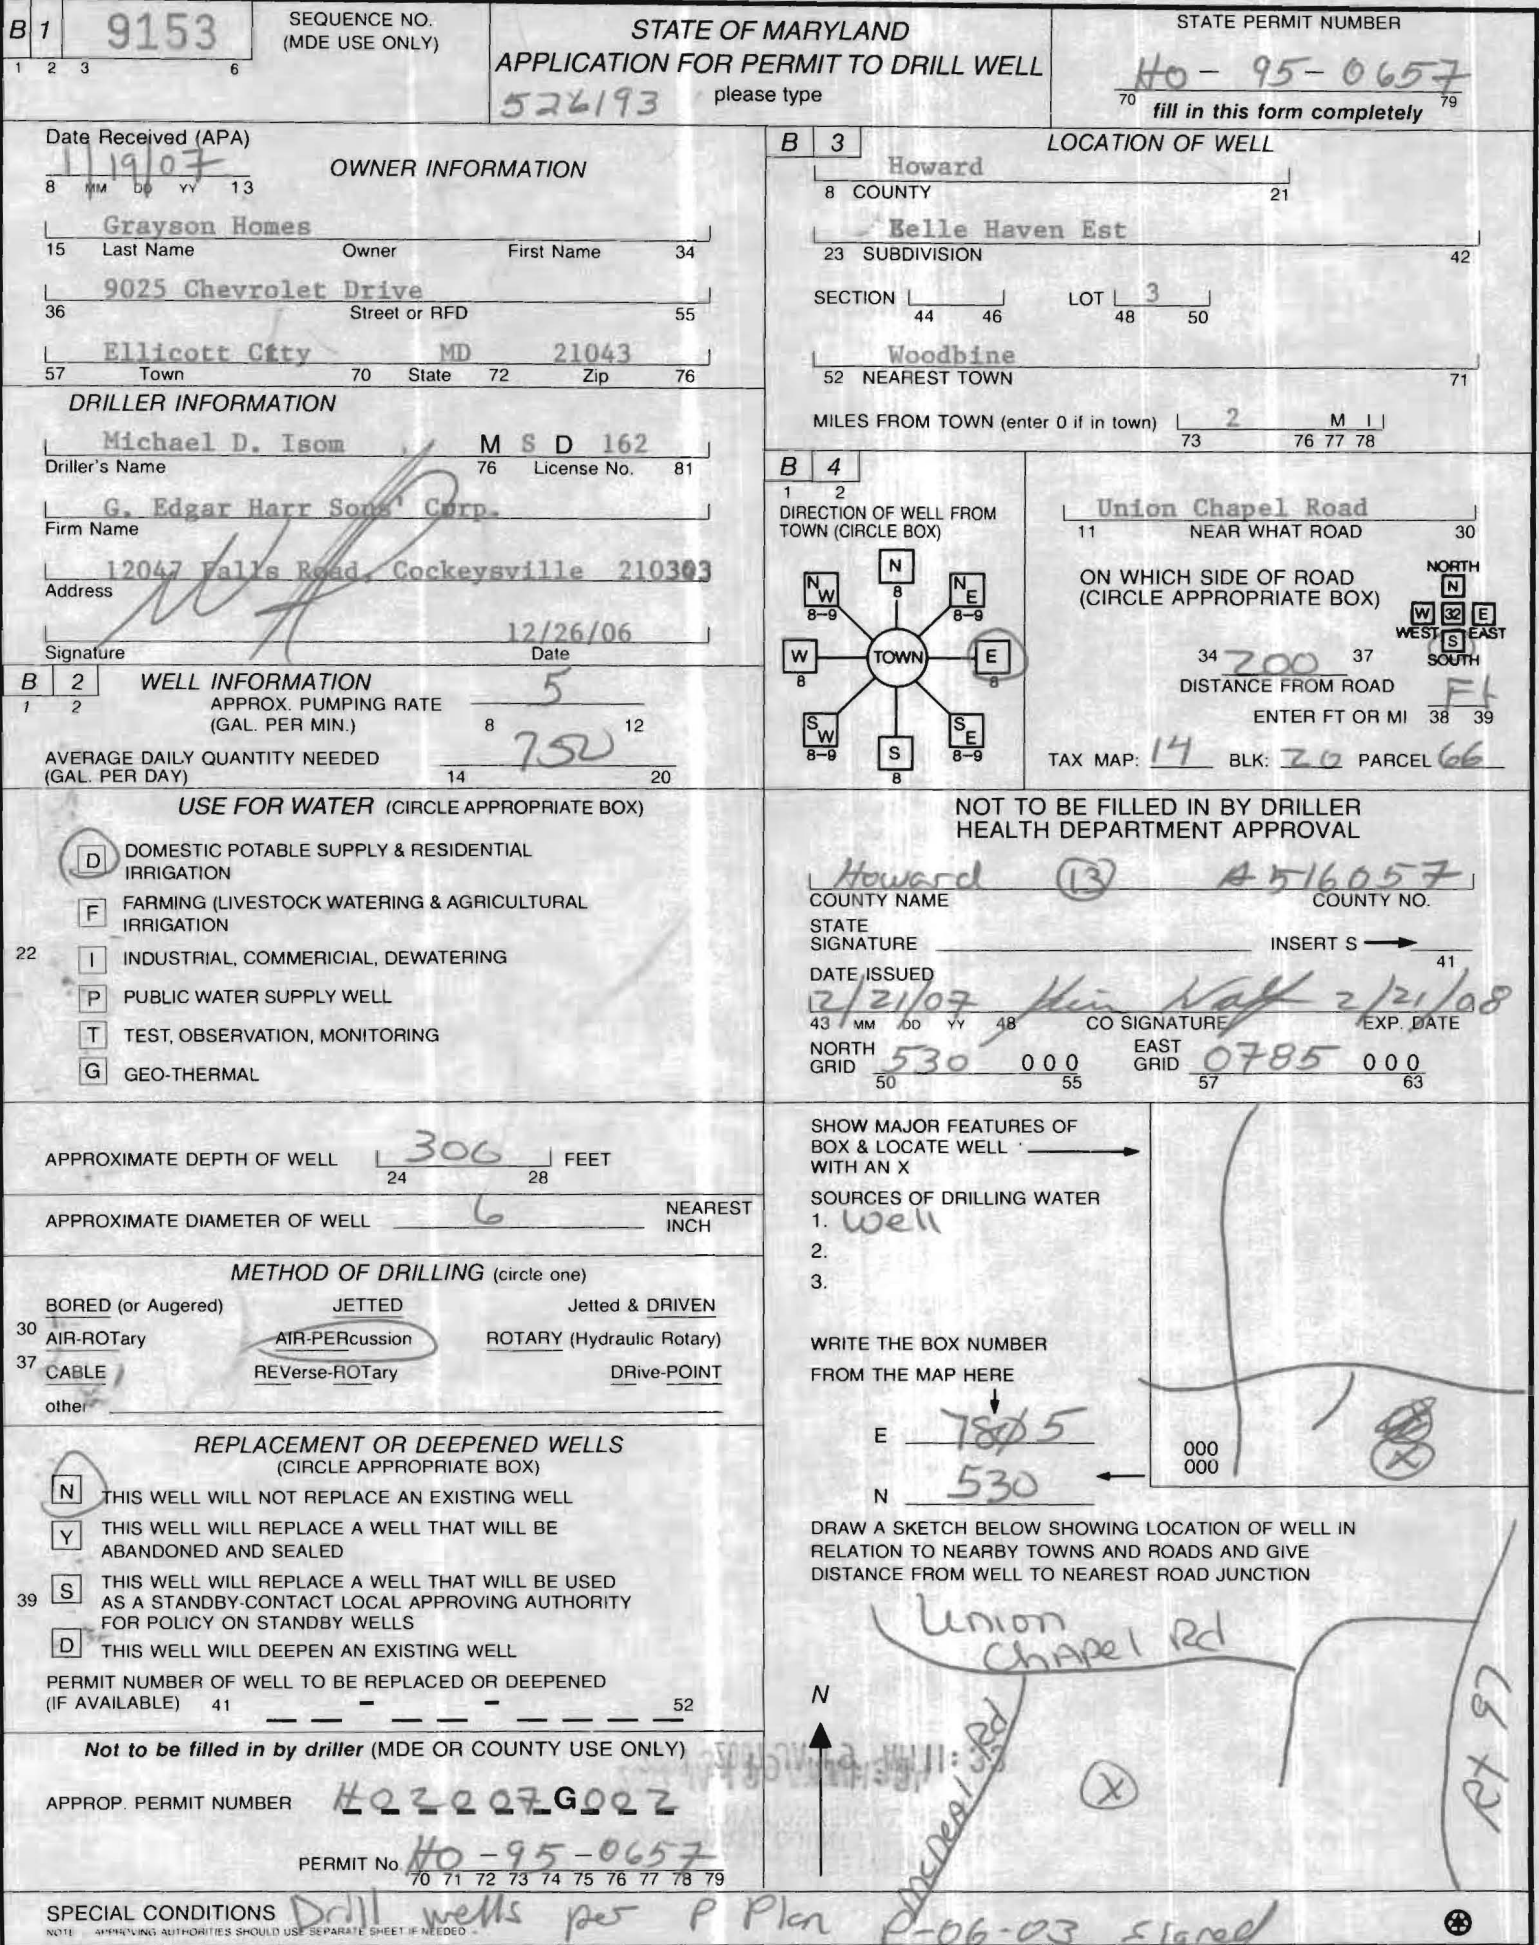 B 1 9153 SEQUENCE NO. (MDE USE ONLY)
1 2 3 6
STATE OF MARYLAND
APPLICATION FOR PERMIT TO DRILL WELL
526193 please type
STATE PERMIT NUMBER
HO - 95 - 0657
70 fill in this form completely 79
Date Received (APA)
1/19/07
8 MM DD YY 13
OWNER INFORMATION
Grayson Homes
15 Last Name Owner First Name 34
9025 Chevrolet Drive
36 Street or RFD 55
Ellicott City MD 21043
57 Town 70 State 72 Zip 76
DRILLER INFORMATION
Michael D. Isom M S D 162
Driller's Name 76 License No. 81
G. Edgar Harr Sons' Corp.
Firm Name
12047 Falls Road, Cockeysville 210303
Address
12/26/06
Signature Date
B 2 WELL INFORMATION
1 2 APPROX. PUMPING RATE 5
(GAL. PER MIN.) 8 12
AVERAGE DAILY QUANTITY NEEDED 750
(GAL. PER DAY) 14 20
USE FOR WATER (CIRCLE APPROPRIATE BOX)
D DOMESTIC POTABLE SUPPLY & RESIDENTIAL
IRRIGATION
F FARMING (LIVESTOCK WATERING & AGRICULTURAL
IRRIGATION
22 I INDUSTRIAL, COMMERICIAL, DEWATERING
P PUBLIC WATER SUPPLY WELL
T TEST, OBSERVATION, MONITORING
G GEO-THERMAL
APPROXIMATE DEPTH OF WELL 300 FEET
24 28
APPROXIMATE DIAMETER OF WELL 6 NEAREST INCH
METHOD OF DRILLING (circle one)
BORED (or Augered) JETTED Jetted & DRIVEN
30 AIR-ROTary AIR-PERcussion ROTARY (Hydraulic Rotary)
37 CABLE REVerse-ROTary DRive-POINT
other
REPLACEMENT OR DEEPENED WELLS
(CIRCLE APPROPRIATE BOX)
N THIS WELL WILL NOT REPLACE AN EXISTING WELL
Y THIS WELL WILL REPLACE A WELL THAT WILL BE
ABANDONED AND SEALED
39 S THIS WELL WILL REPLACE A WELL THAT WILL BE USED
AS A STANDBY-CONTACT LOCAL APPROVING AUTHORITY
FOR POLICY ON STANDBY WELLS
D THIS WELL WILL DEEPEN AN EXISTING WELL
PERMIT NUMBER OF WELL TO BE REPLACED OR DEEPENED
(IF AVAILABLE) 41 - - 52
Not to be filled in by driller (MDE OR COUNTY USE ONLY)
APPROP. PERMIT NUMBER HO2007G002
PERMIT No. HO - 95 - 0657
70 71 72 73 74 75 76 77 78 79
B 3 LOCATION OF WELL
Howard
8 COUNTY 21
Belle Haven Est
23 SUBDIVISION 42
SECTION LOT 3
44 46 48 50
Woodbine
52 NEAREST TOWN 71
MILES FROM TOWN (enter 0 if in town) 2 M I
73 76 77 78
B 4
1 2
DIRECTION OF WELL FROM
TOWN (CIRCLE BOX)
N 8
NW 8-9 NE 8-9
W 8 TOWN E 8
SW 8-9 SE 8-9
S 8
Union Chapel Road
11 NEAR WHAT ROAD 30
ON WHICH SIDE OF ROAD
(CIRCLE APPROPRIATE BOX)
NORTH
N
W 32 E
WEST S EAST
SOUTH
34 200 37
DISTANCE FROM ROAD
ENTER FT OR MI Ft
38 39
TAX MAP: 14 BLK: 20 PARCEL 66
NOT TO BE FILLED IN BY DRILLER
HEALTH DEPARTMENT APPROVAL
Howard 13 A516057
COUNTY NAME COUNTY NO.
STATE
SIGNATURE INSERT S
41
DATE ISSUED
2/21/07 2/21/08
43 MM DD YY 48 CO SIGNATURE EXP. DATE
NORTH GRID 530 000 EAST GRID 0785 000
50 55 57 63
SHOW MAJOR FEATURES OF
BOX & LOCATE WELL
WITH AN X
SOURCES OF DRILLING WATER
1. Well
2.
3.
WRITE THE BOX NUMBER
FROM THE MAP HERE
E 785
N 530
000
000
X
DRAW A SKETCH BELOW SHOWING LOCATION OF WELL IN
RELATION TO NEARBY TOWNS AND ROADS AND GIVE
DISTANCE FROM WELL TO NEAREST ROAD JUNCTION
Union
Chapel Rd
N
X
Rt 97
SPECIAL CONDITIONS Drill wells per P Plan P-06-03 signed
NOTE APPROVING AUTHORITIES SHOULD USE SEPARATE SHEET IF NEEDED